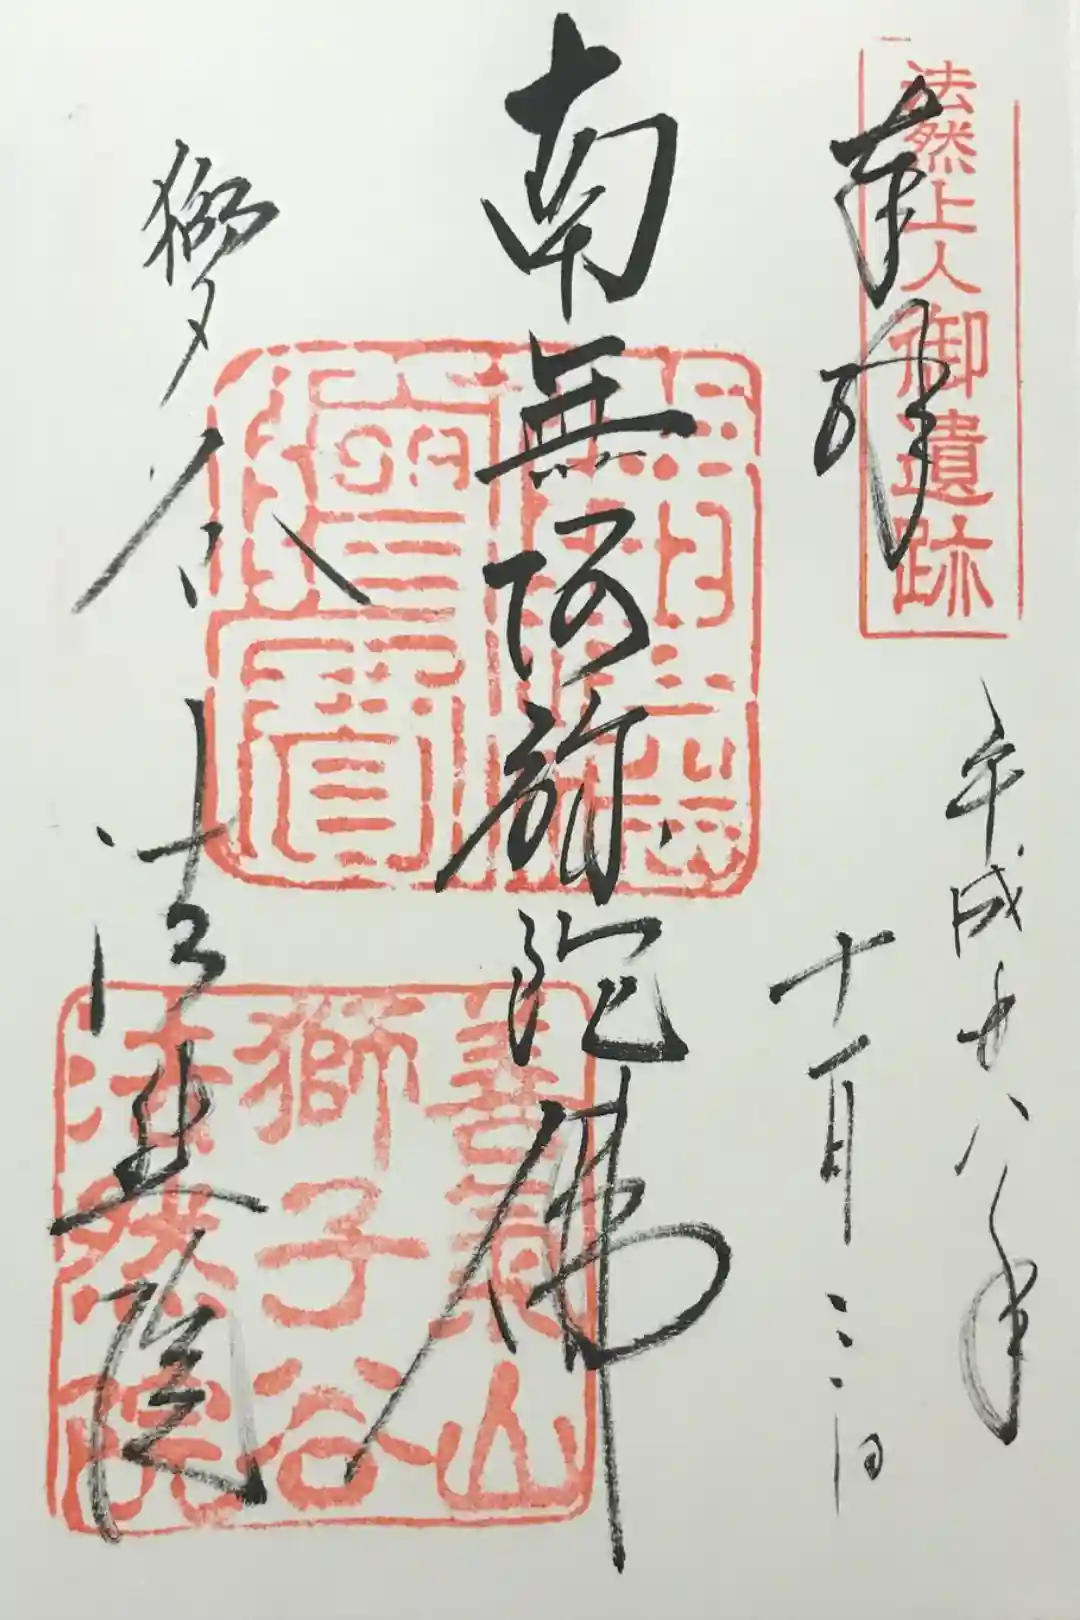 法然上人御遺跡
奉拝
平成廿八年
十一月三日
南無阿弥陀佛
善氣山
獅子谷
法然院
獅子谷
法然院